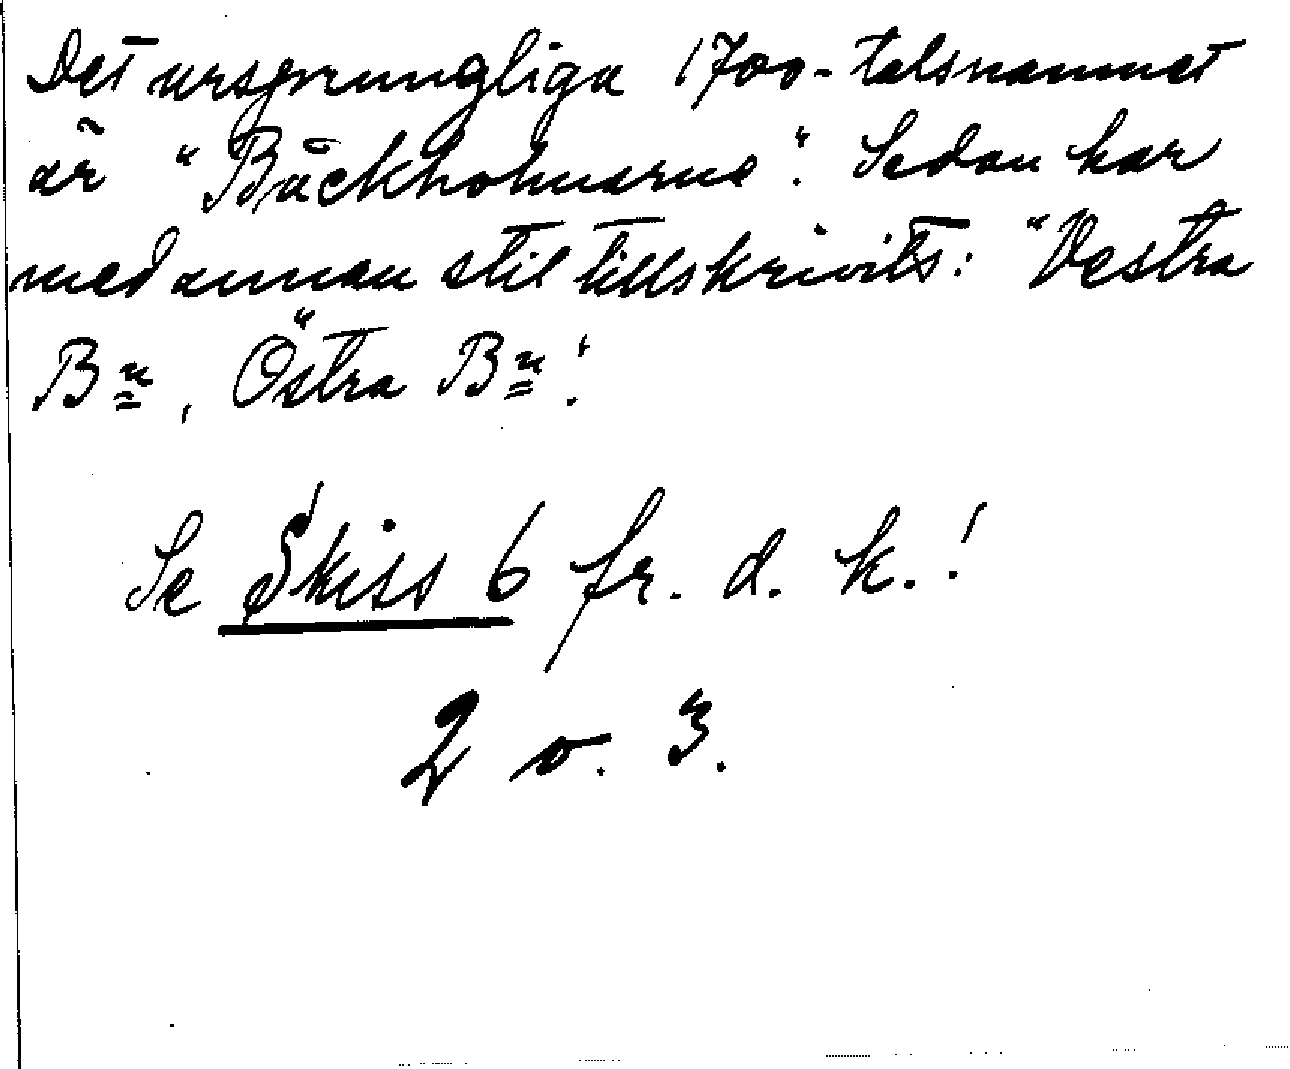 Det ursprungliga 1700-talsnamnet
är "Bäckholmarne". Sedan har
med annan stil tillskrivits: "Vestra
Bn, Östra Bn".
Se Skiss 6 fr. d. k.!
2 o. 3.